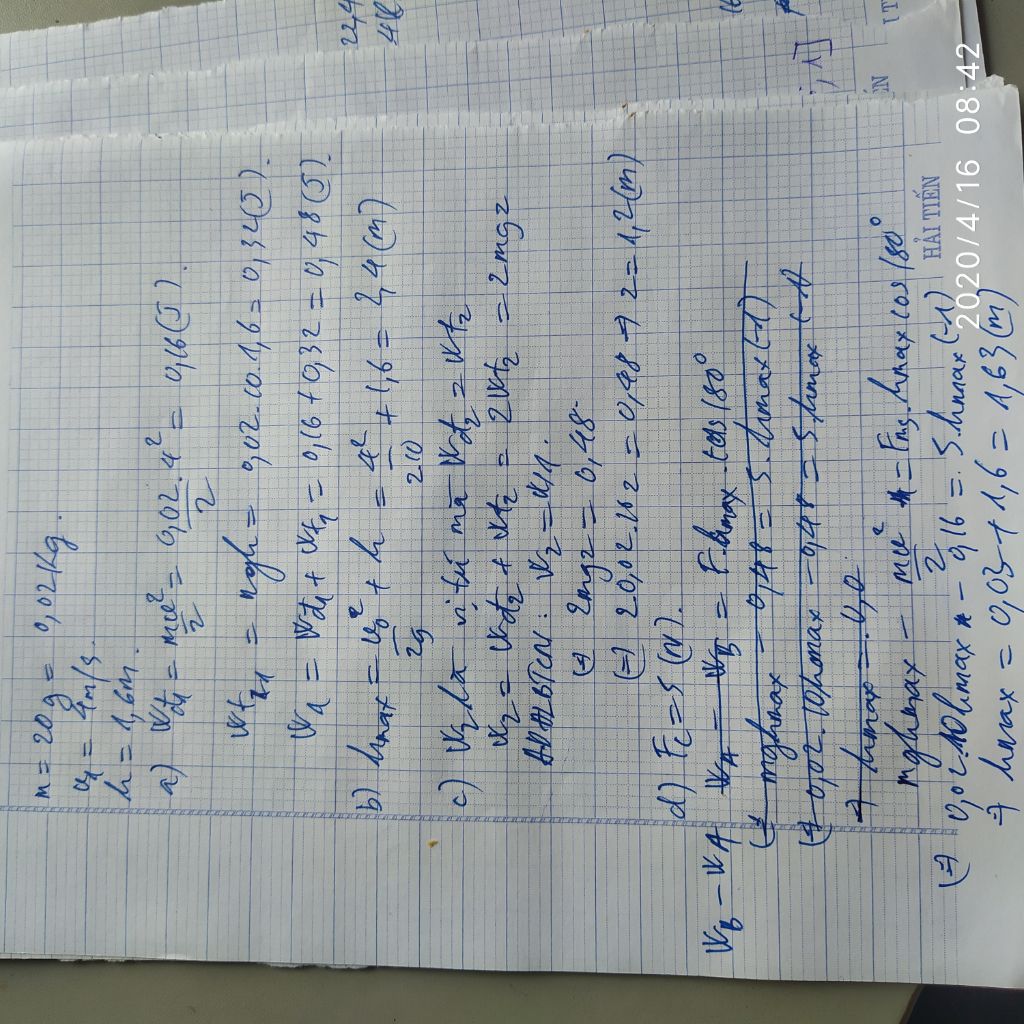 m = 20g = 0,02Kg.
v₁ = 4m/s.
h = 1,6m.
a) Wđ₁ = mv²/2 = 0,02.4²/2 = 0,16(J).
Wt₁ = mgh = 0,02.10.1,6 = 0,32(J).
W_A = Wđ₁ + Wt₁ = 0,16 + 0,32 = 0,48(J).
b) hmax = v₀²/2g + h = 4²/2.10 + 1,6 = 2,4(m)
c) W₂ là vị trí mà Wđ₂ = Wt₂
W₂ = Wđ₂ + Wt₂ = 2Wt₂ = 2mgz
ADĐLBTCN: W₂ = W₁.
(=) 2mgz = 0,48.
(=) 2.0,02.10z = 0,48 => z = 1,2(m)
d) Fc = 5 (N).
W_B - W_A W_A - W_B = F.hmax.cos180°
(=) mghmax - 0,48 = 5.hmax(-1)
(=) 0,02.10hmax - 0,48 = 5.hmax(-1)
=> hmax = 0,0
mghmax - mv²/2 = Fms.hmax cos180°
(=) 0,02.10hmax - 0,16 = 5.hmax(-1)
=> hmax = 0,03 + 1,6 = 1,63(m)
HẢI TIẾN
2020/4/16 08:42
22,4